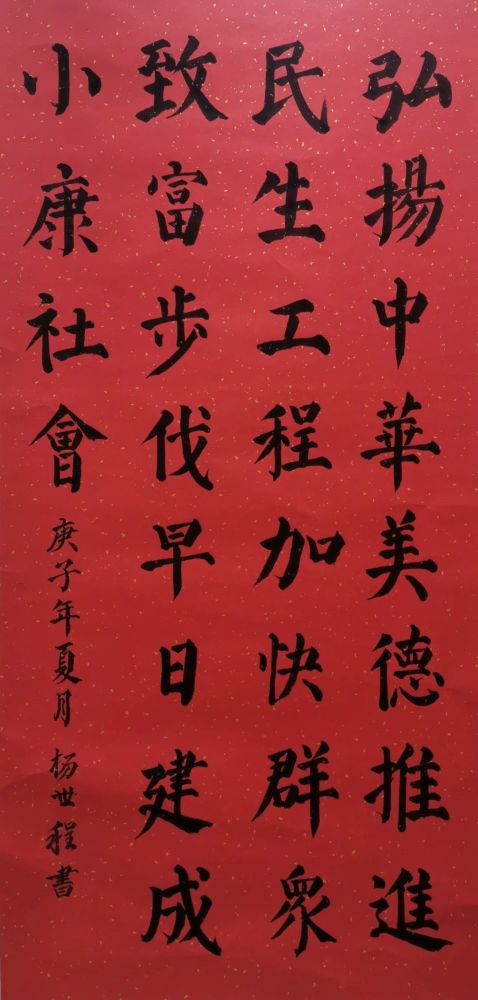 弘揚中華美德推進
民生工程加快群眾
致富步伐早日建成
小康社會
庚子年夏月 杨世程書